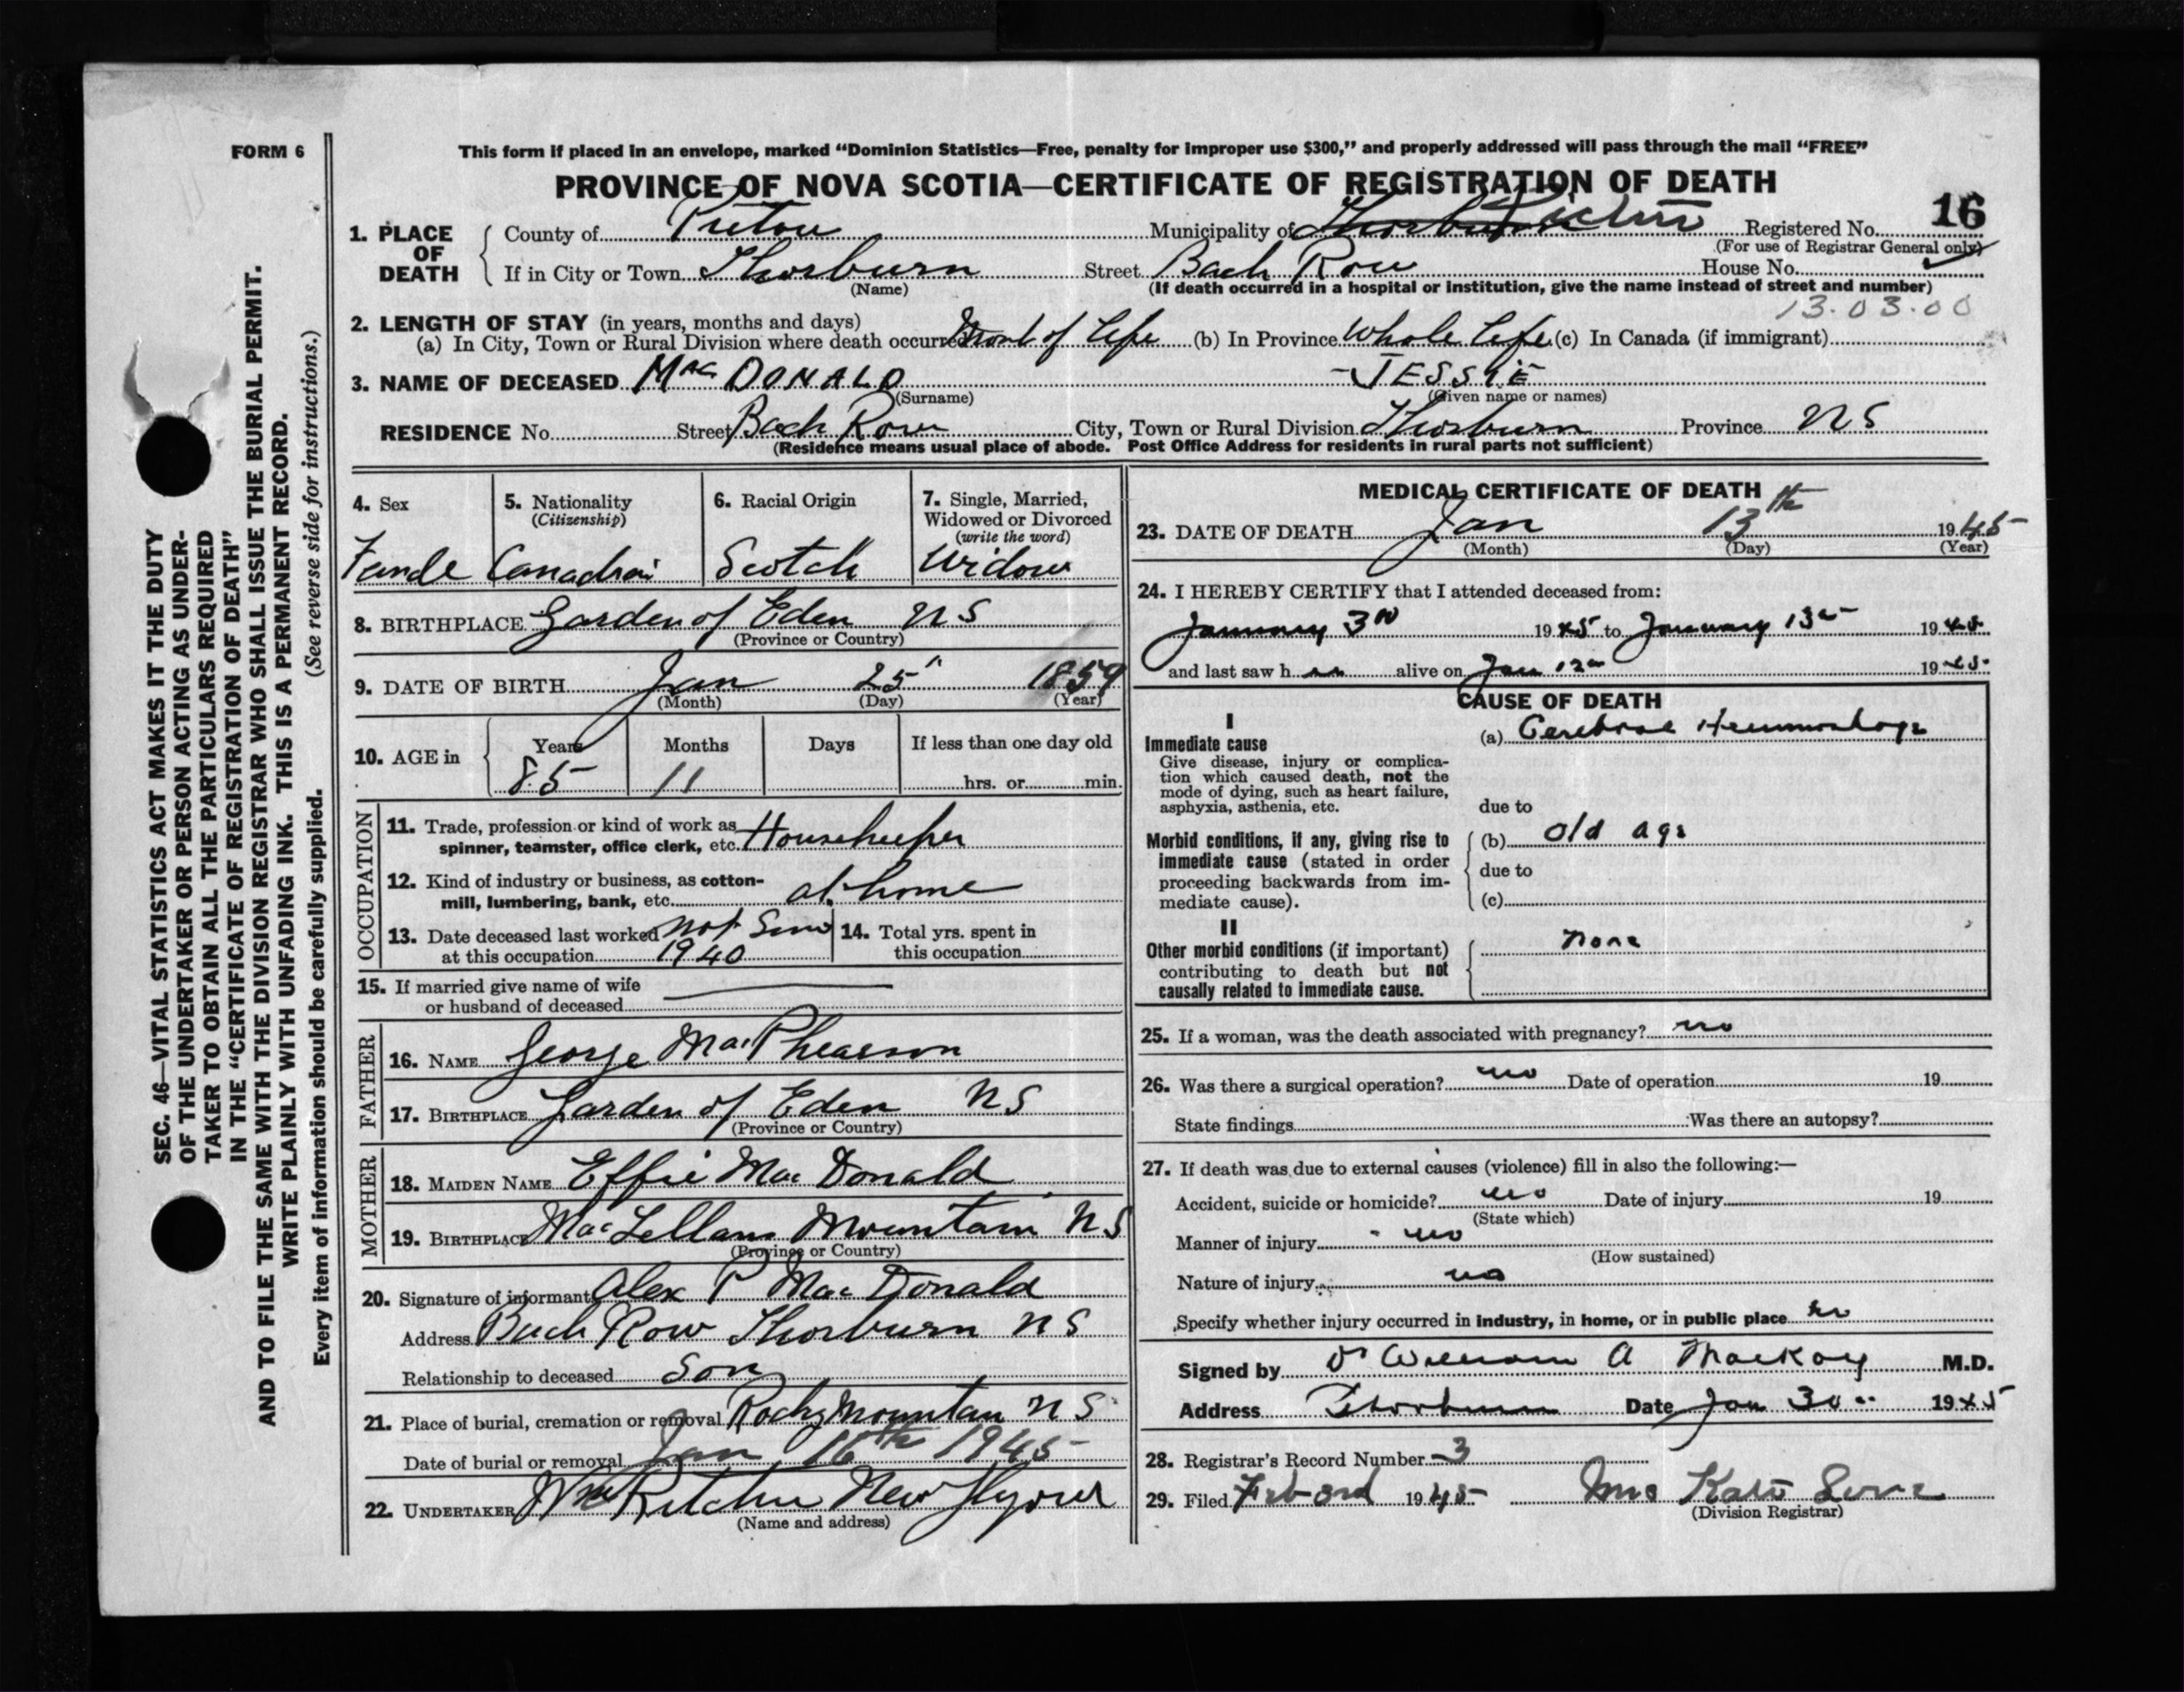 FORM 6
This form if placed in an envelope, marked “Dominion Statistics—Free, penalty for improper use $300,” and properly addressed will pass through the mail “FREE”
PROVINCE OF NOVA SCOTIA—CERTIFICATE OF REGISTRATION OF DEATH
16
1. PLACE OF DEATH
County of Pictou Municipality of Thorburn Pictou Registered No.
(For use of Registrar General only)
If in City or Town Thorburn Street Back Row House No.
(Name) (If death occurred in a hospital or institution, give the name instead of street and number)
13.03.00
2. LENGTH OF STAY (in years, months and days)
(a) In City, Town or Rural Division where death occurred Most of life (b) In Province Whole life (c) In Canada (if immigrant)
3. NAME OF DECEASED MacDONALD JESSIE
(Surname) (Given name or names)
RESIDENCE No. Street Back Row City, Town or Rural Division Thorburn Province NS
(Residence means usual place of abode. Post Office Address for residents in rural parts not sufficient)
4. Sex 5. Nationality (Citizenship) 6. Racial Origin 7. Single, Married, Widowed or Divorced (write the word)
Female Canadian Scotch Widow
8. BIRTHPLACE Garden of Eden NS
(Province or Country)
9. DATE OF BIRTH Jan 25" 1859
(Month) (Day) (Year)
10. AGE in Years Months Days If less than one day old
85 11 hrs. or min.
OCCUPATION
11. Trade, profession or kind of work as spinner, teamster, office clerk, etc. Housekeeper
12. Kind of industry or business, as cotton-mill, lumbering, bank, etc. at home
13. Date deceased last worked at this occupation not Since 1940
14. Total yrs. spent in this occupation
15. If married give name of wife
or husband of deceased
FATHER
16. NAME George MacPhearson
17. BIRTHPLACE Garden of Eden NS
(Province or Country)
MOTHER
18. MAIDEN NAME Effie MacDonald
19. BIRTHPLACE MacLellans Mountain NS
(Province or Country)
20. Signature of informant Alex P MacDonald
Address Back Row Thorburn NS
Relationship to deceased Son
21. Place of burial, cremation or removal Rocky Mountain NS
Date of burial or removal Jan 16th 1945
22. UNDERTAKER Wm Ritchie New Glasgow
(Name and address)
MEDICAL CERTIFICATE OF DEATH
23. DATE OF DEATH Jan 13th 1945
(Month) (Day) (Year)
24. I HEREBY CERTIFY that I attended deceased from:
January 3rd 1945 to January 13 1945
and last saw h alive on Jan 12 1945
CAUSE OF DEATH
I
Immediate cause
Give disease, injury or complica-
tion which caused death, not the
mode of dying, such as heart failure,
asphyxia, asthenia, etc.
(a) Cerebral Hemmorhage
due to
Morbid conditions, if any, giving rise to
immediate cause (stated in order
proceeding backwards from im-
mediate cause).
(b) old age
due to
(c)
II
Other morbid conditions (if important)
contributing to death but not
causally related to immediate cause.
none
25. If a woman, was the death associated with pregnancy? no
26. Was there a surgical operation? no Date of operation 19
State findings Was there an autopsy?
27. If death was due to external causes (violence) fill in also the following:—
Accident, suicide or homicide? no Date of injury 19
(State which)
Manner of injury no
(How sustained)
Nature of injury no
Specify whether injury occurred in industry, in home, or in public place no
Signed by Dr William A MacKay M.D.
Address Thorburn Date Jan 30 1945
28. Registrar's Record Number 3
29. Filed Feb 3rd 1945 Mrs Kate
(Division Registrar)
SEC. 46—VITAL STATISTICS ACT MAKES IT THE DUTY
OF THE UNDERTAKER OR PERSON ACTING AS UNDER-
TAKER TO OBTAIN ALL THE PARTICULARS REQUIRED
IN THE “CERTIFICATE OF REGISTRATION OF DEATH”
AND TO FILE THE SAME WITH THE DIVISION REGISTRAR WHO SHALL ISSUE THE BURIAL PERMIT.
WRITE PLAINLY WITH UNFADING INK. THIS IS A PERMANENT RECORD.
Every item of information should be carefully supplied. (See reverse side for instructions.)